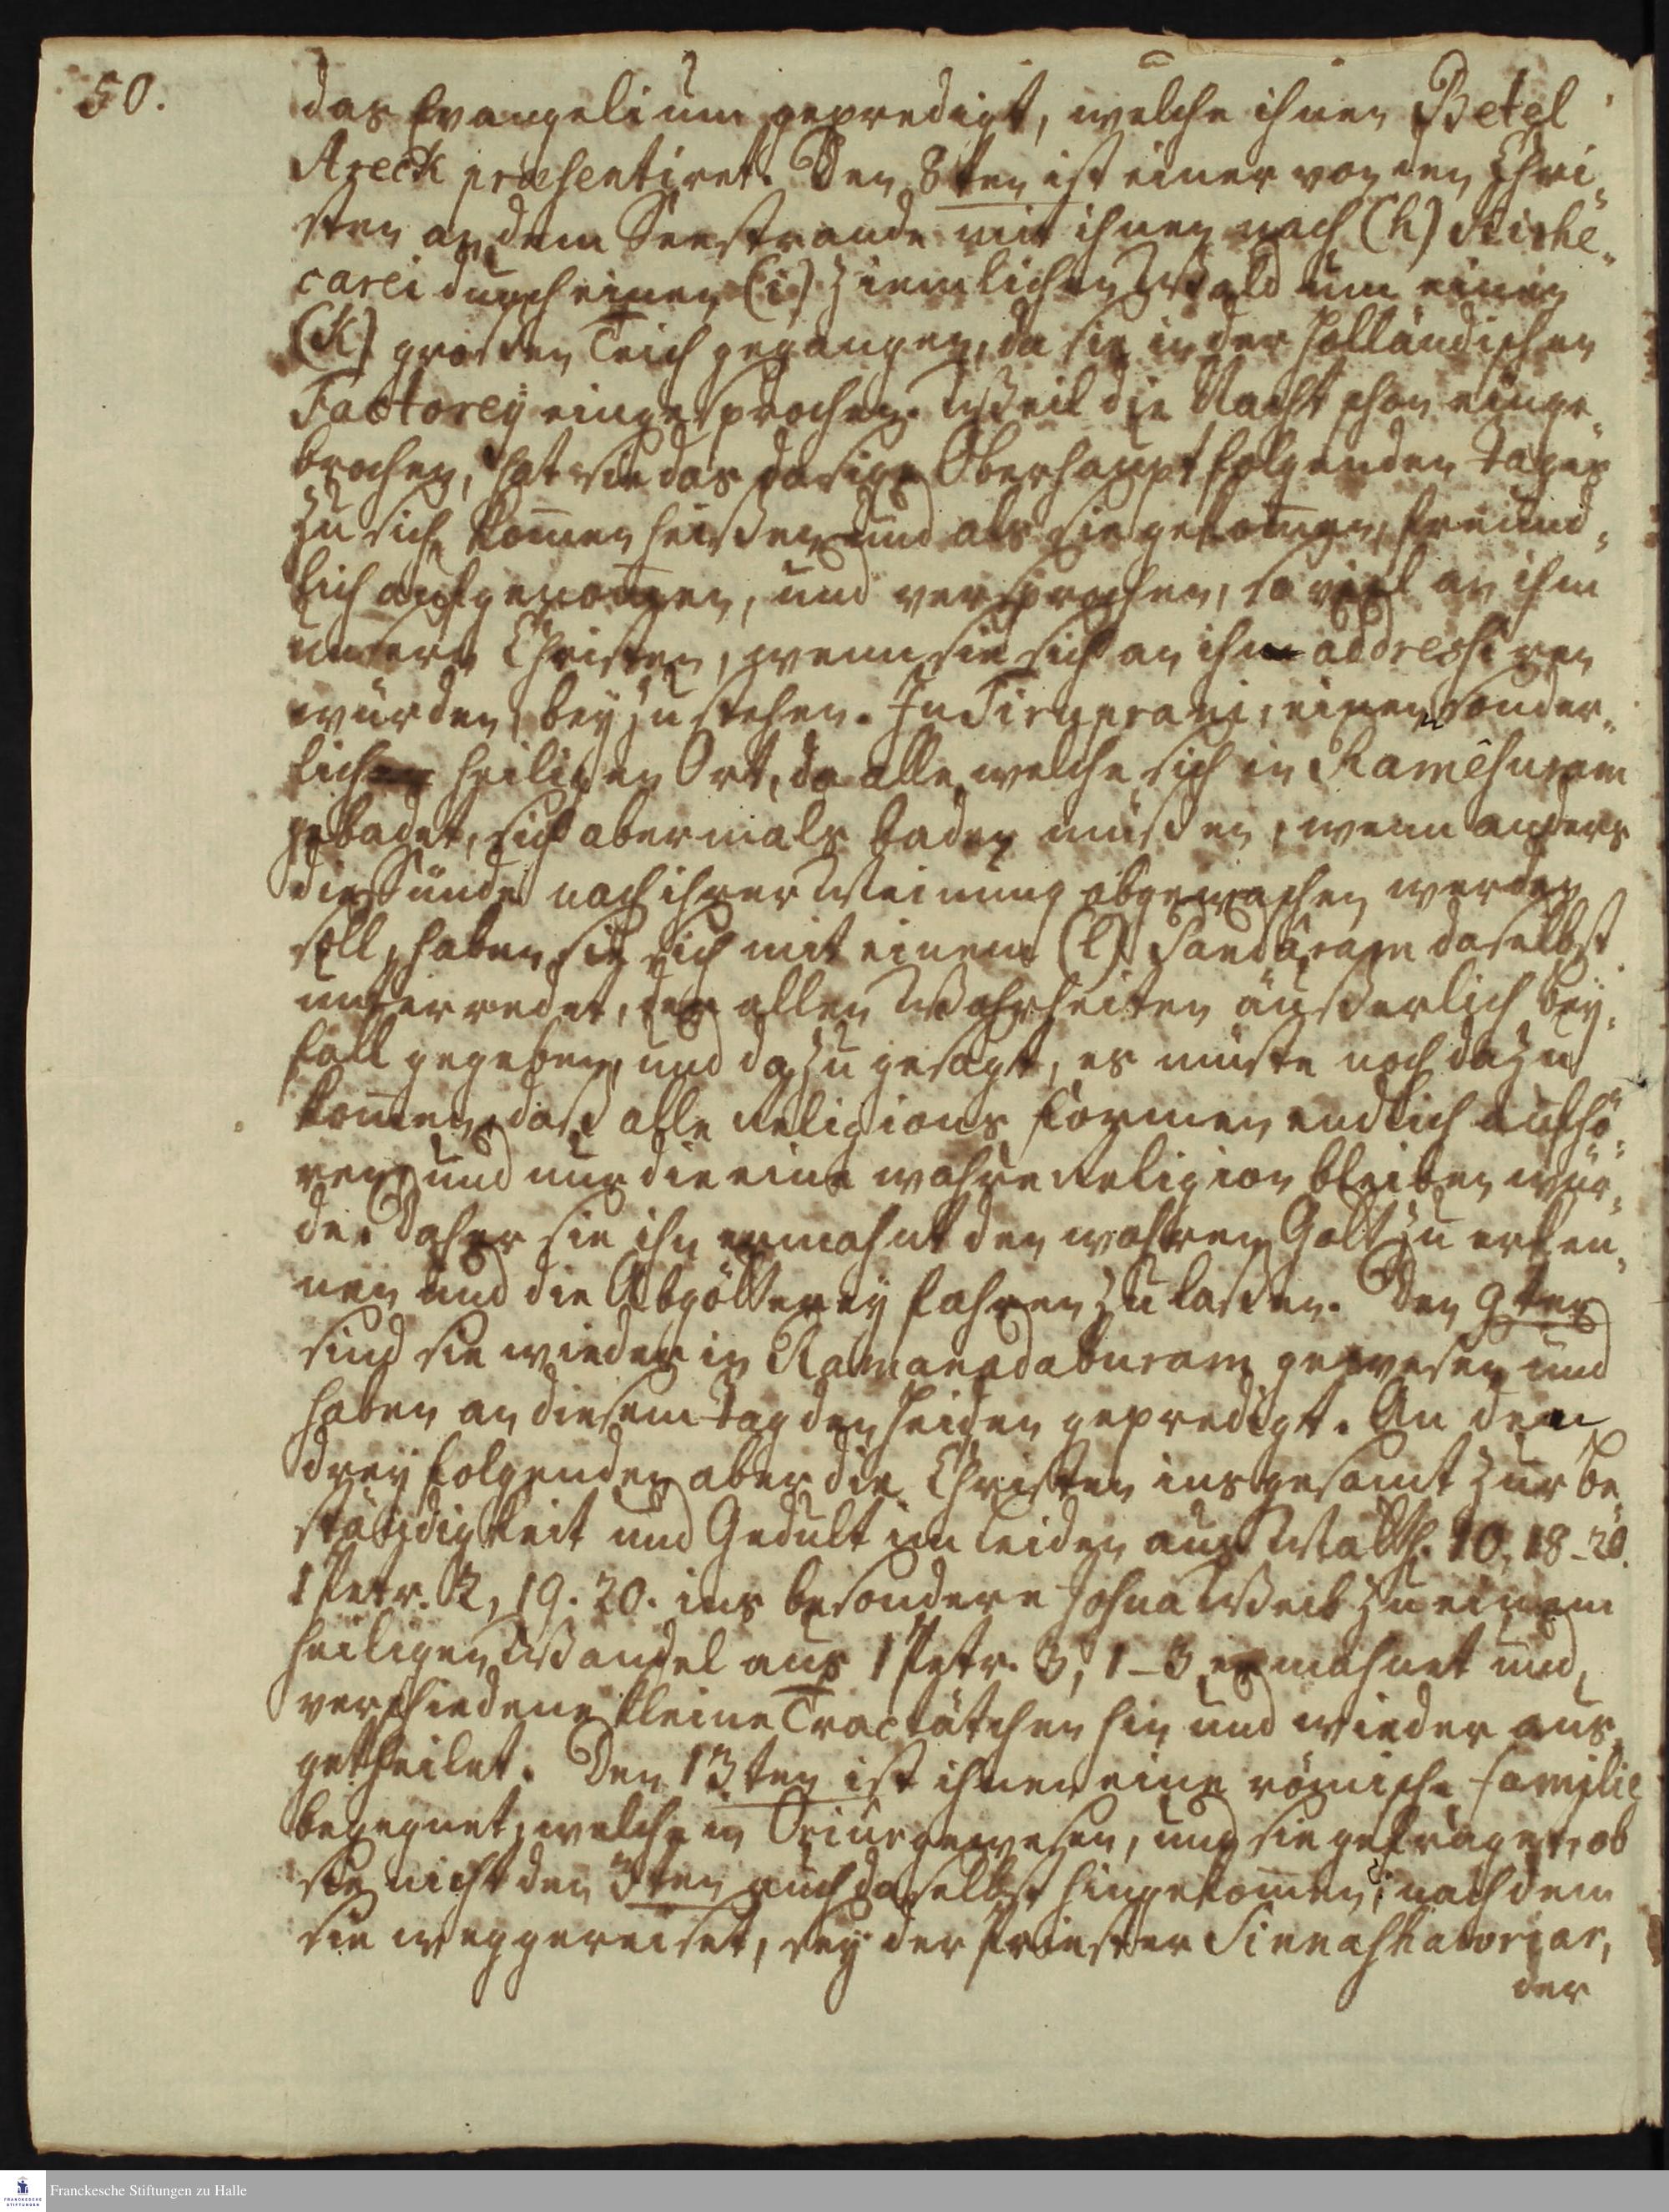 50.
das Evangelium gepredigt, welche ihnen Betel
Areck præsentiret. Den 8ten ist einer von den Chri„
sten an dem Seestrande mit ihnen nach (h) Kirhe„
carei durch einen (i) ziemlichen Wald um einen
(K) großen Teich gegangen, da sie in der Holländischen
Factorey eingesprochen. Weil die Nacht schon einge„
brochen, hat sie das dasige Oberhaupt folgenden Tages
zu sich kom̄en heißen und als sie gekom̄en, freund„
lich aufgenom̄en, und versprochen, so viel an ihm
unsern Christen, wenn sie sich an ihn addressiren
würden, beyzustehen. In Tiruperani, einen sonder„
lich heiligen Ort, da alle, welche sich in Ramêsuram
gebadet, sich abermals baden müßen, wenn anders
die Sünde nach ihrer Meinung abgewaschen werden
soll, haben sie sich mit einem (l) Pandâram daselbst
unterredet, der allen Wahrheiten äußerlich bey„
fall gegeben, und dazu gesagt, es müste noch dazu
kom̄en, daß alle Religions Formen endlich aufhö„
ren, und nur die eine wahre Religion bleiben wür„
de. Daher sie ihn ermahnt den wahren Gott zu erken„
nen und die Abgötterey fahren zu laßen. Den 9ten
sind sie wieder in Ramanadaburam gewesen und
haben an diesem Tag den Heiden gepredigt. An den
drey folgenden aber die Christen insgesamt zur Be„
ständigkeit und Gedult im Leiden aus Matth. 10, 18-20.
1 Petr. 2, 19. 20. ins besondere Johna Weib zu einem
heiligen Wandel aus 1 Petr. 3, 1-3 ermahnet und
verschiedene kleine Tractätchen hin und wieder aus„
getheilet. Den 13ten ist ihnen eine römische Familie
begegnet, welche in Oriur gewesen, und sie gefraget, ob
sie nicht den 3ten auch daselbst hingekom̄en; nach dem
sie weggereiset, sey der Priester Sinnashavoriar,
der
Franckesche Stiftungen zu Halle